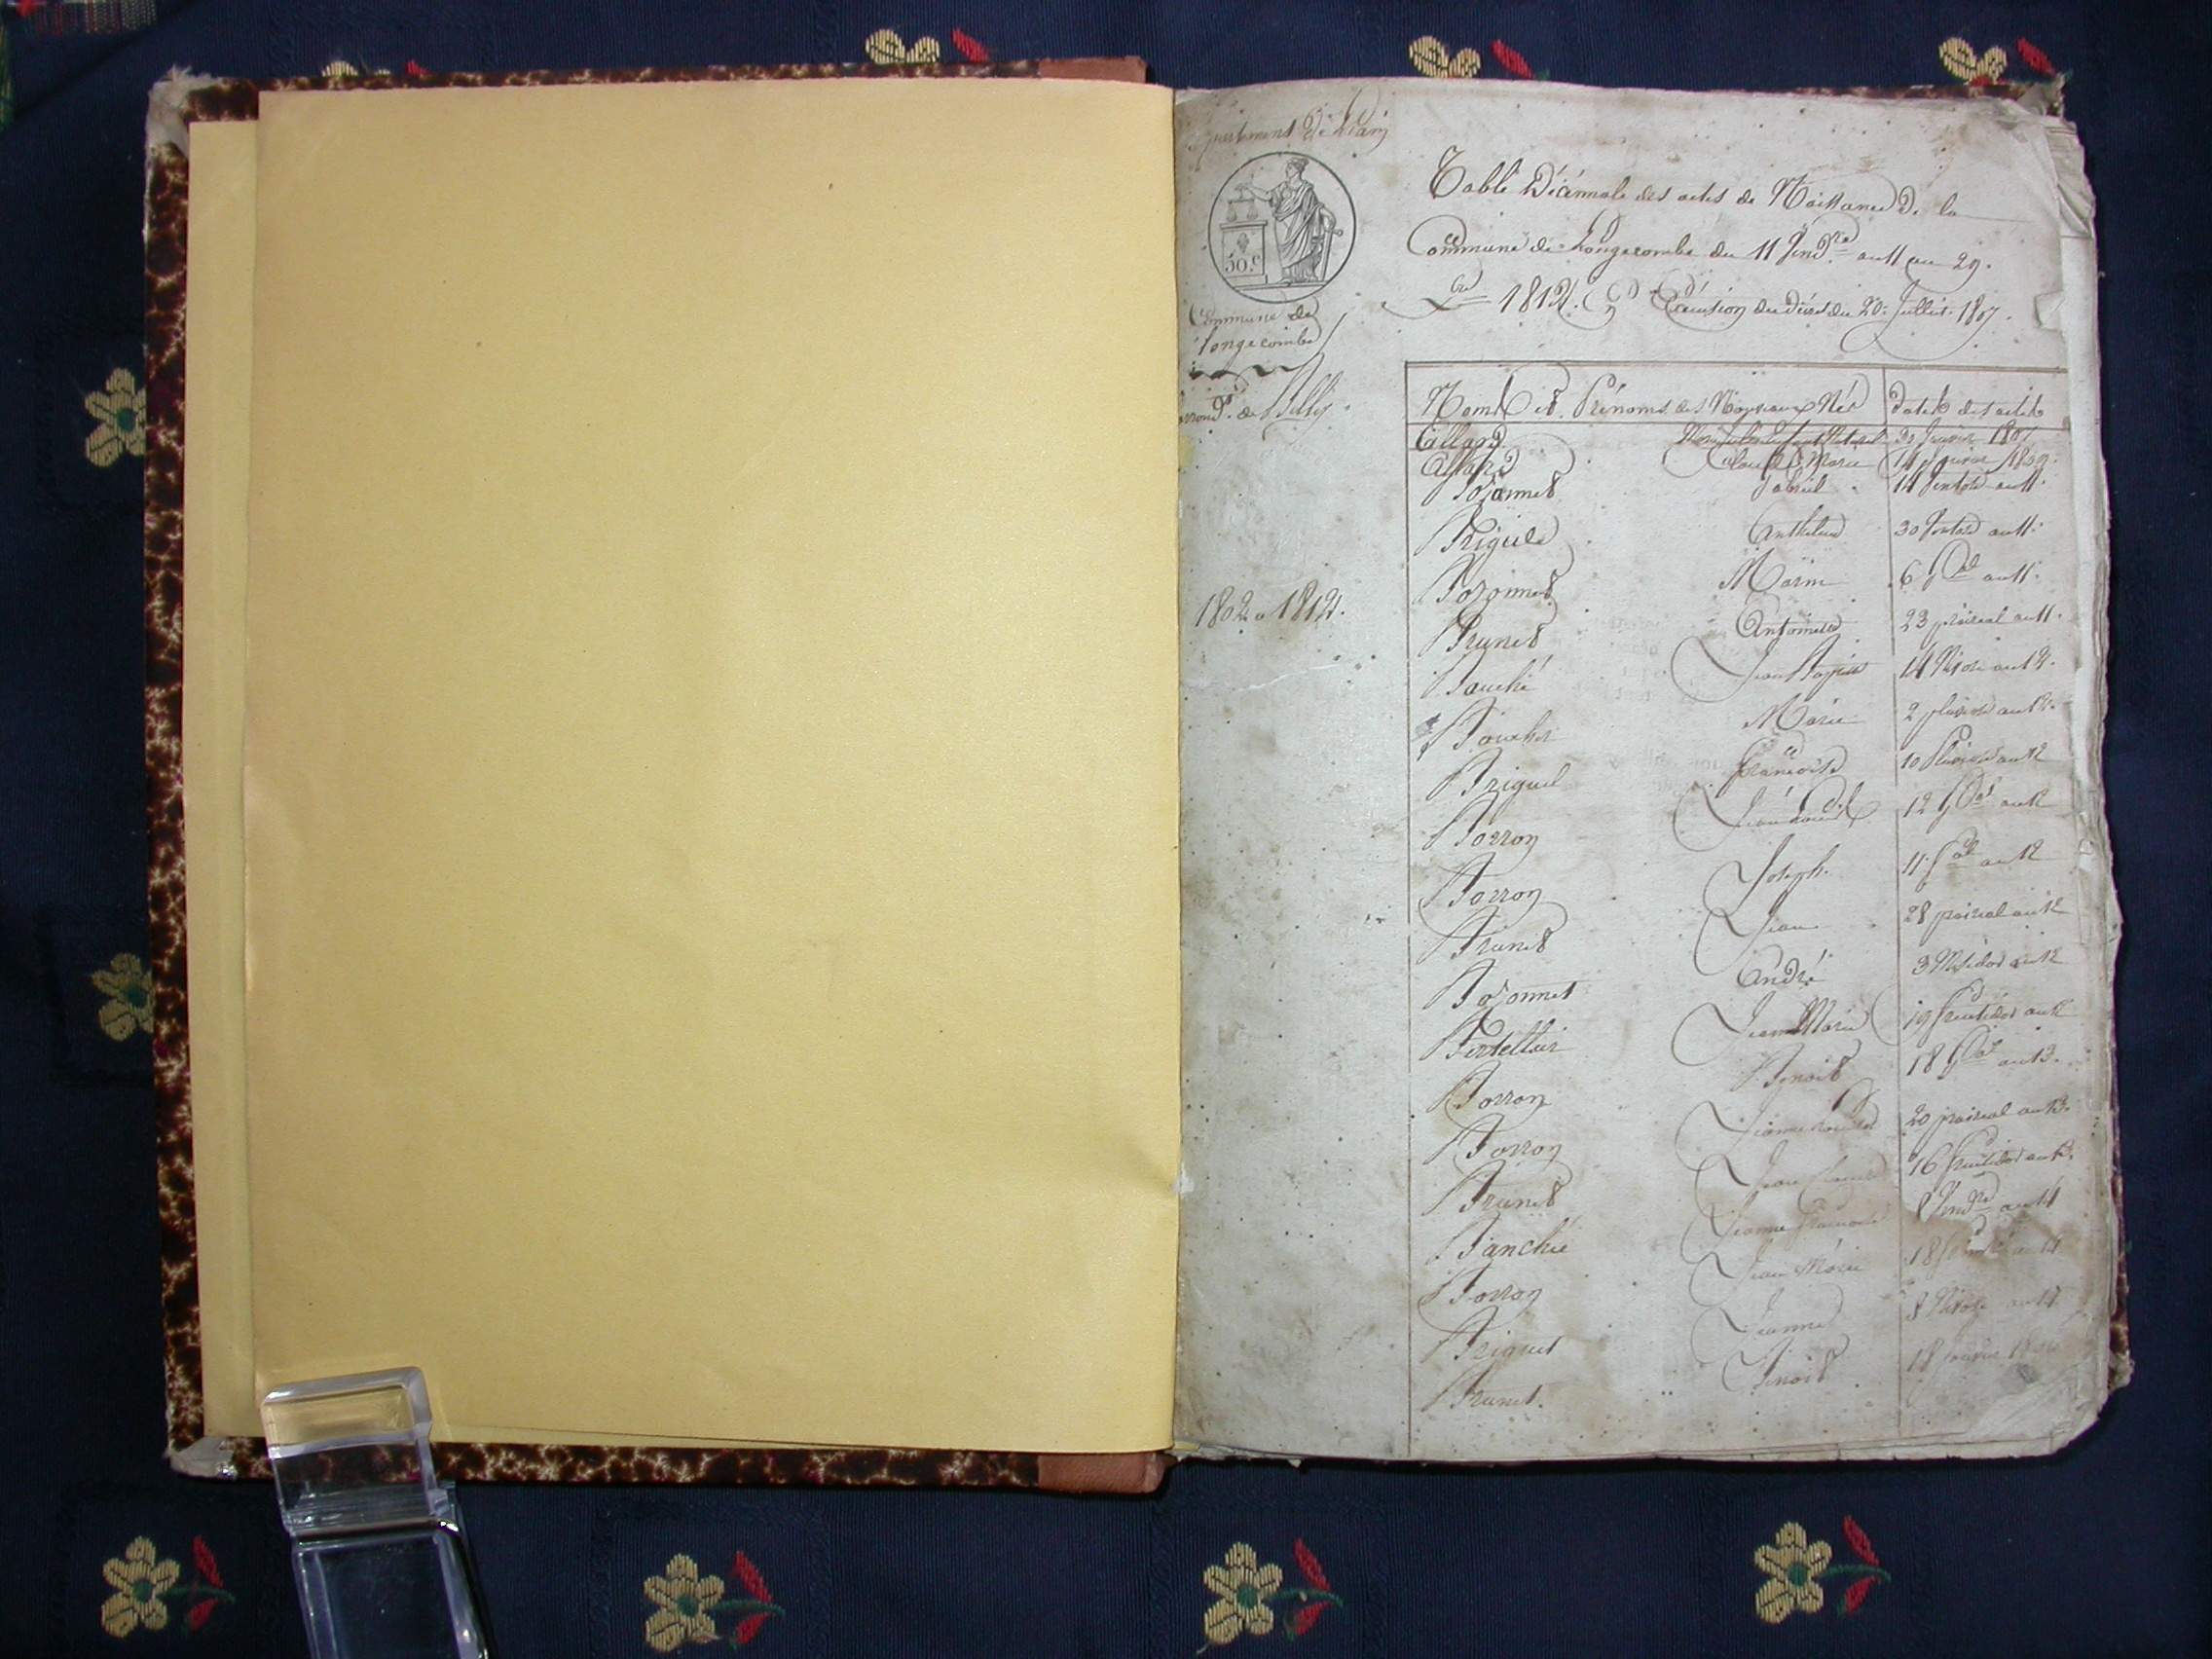 Département de l'ain
50.c
Commune de
Longecombe
arrond.t de Belley.
1802 a 1812.
Table Décennale des actes de Naissance de la
Commune de Longecombe du 11 Vend.re an 11 au 29.
1812. En Exécution du Décret du 20. Juillet 1807.
Noms et Prénoms des Nouveaux Nés Dates des actes
Allard 1807
Allard Claude Marie 1809.
Bozonnet Gabriel 14 Ventose an 11.
Briguet Anthelme 30 Ventose an 11.
Bozonnet Marie 6 G.al an 11.
Brunet Antoine 23 prairial an 11.
Bauché Jean 14 Nivose an 12.
Marie 2 pluviose an 12.
Briguet françoise 10 Pluviose an 12
Borron 12 G.al an 12
Borron Joseph. 11. G.al an 12
Brunet Jean 28 prairial an 12
Bozonnet André 3 Messidor an 12
Berthellier Jeanne Marie 19 fructidor an 12
Borron Benoit 18 G.al an 13.
Borron 20 prairial an 13.
Brunet Jean Claude 16 fructidor an 13.
Bauché Jeanne françoise 8 Vend.re an 14
Borron Jean Marie 18 an 14
Briguet Jeanne 8 Nivose an 14
Brunet. Benoit 18 janvier